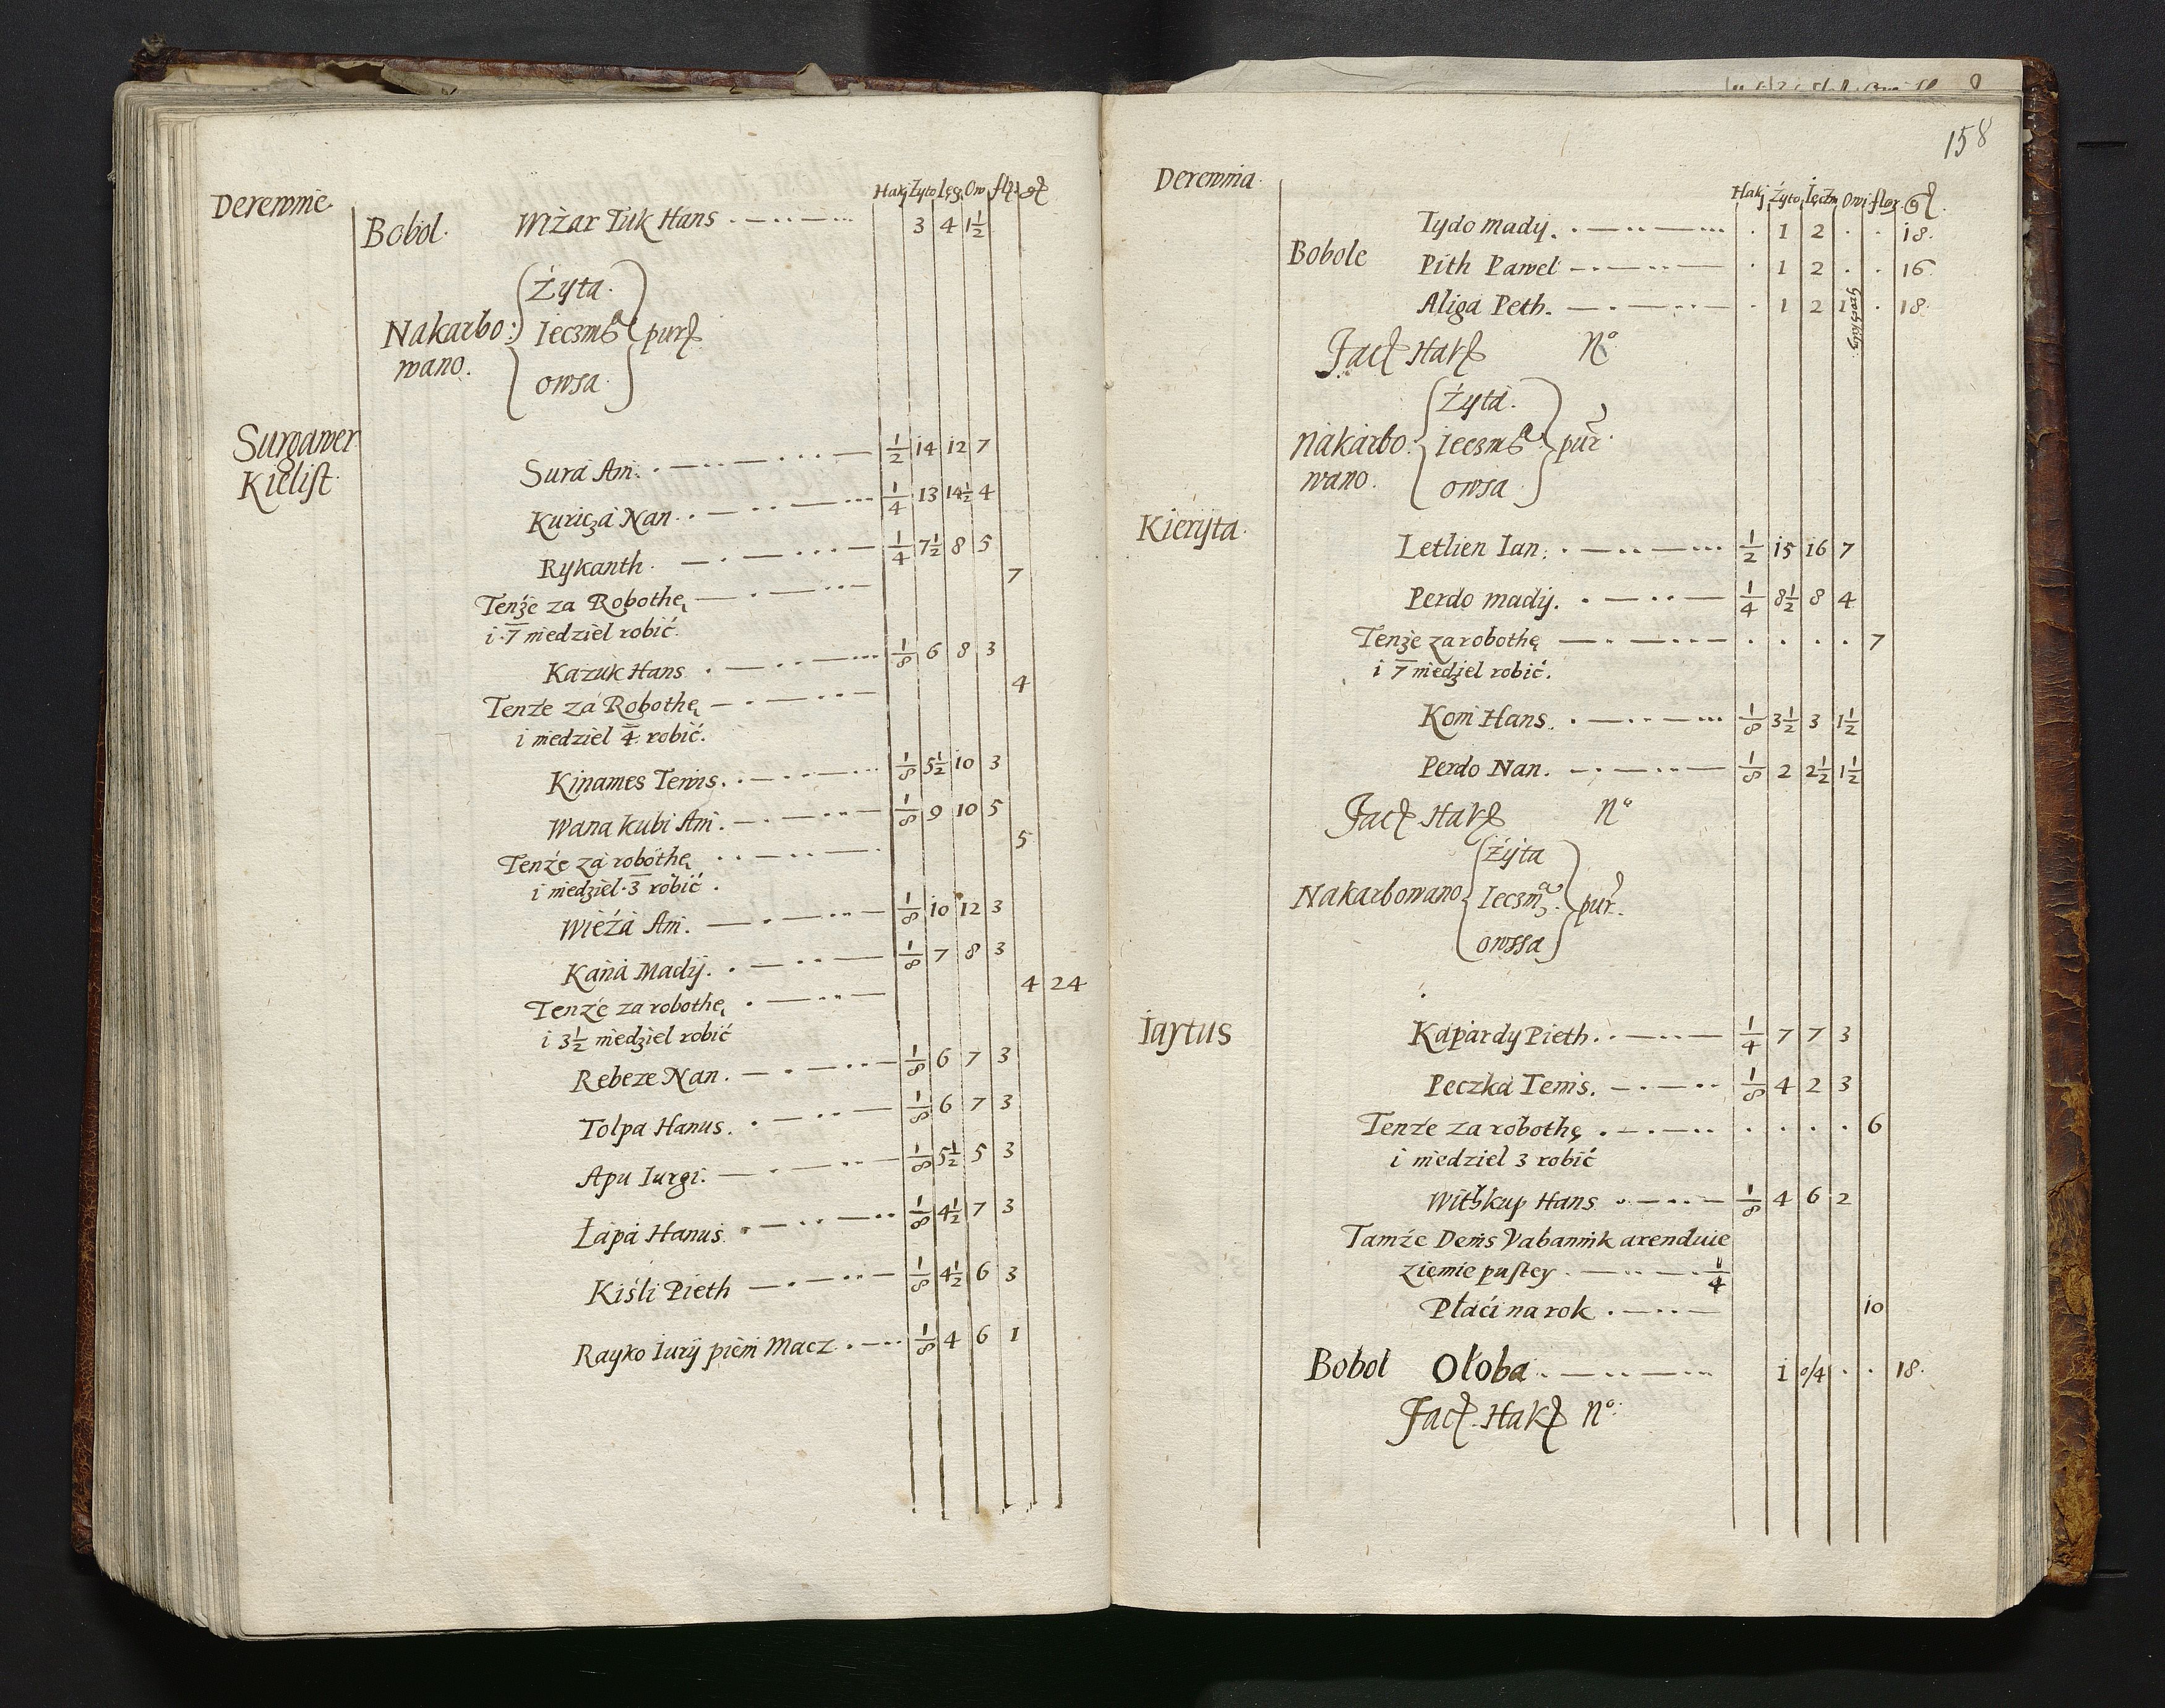 Derewnie
Haky Żyto Ięcz. Ow. flr. gr.
Bobol. Wiżar Tuk Hans 3 4 1½
Żyta.
Nakarbo: Ieczmē purz.
wano.
owsa.
Surgawer
Kielist.
Sura An. ½ 14 12 7
Kuricza Nan. ¼ 13 14½ 4
Rykanth. ¼ 7½ 8 5
Tenże za Robothę 7
i 7 niedziel robić.
Kazuk Hans. ⅛ 6 8 3
Tenże za Robothę 4
i niedziel 4 robić.
Kinames Tenis. ⅛ 5½ 10 3
Wana Kubi An. ⅛ 9 10 5
Tenże za robothę 5
i niedziel 3 robić.
Wieża An. ⅛ 10 12 3
Kana Mady. ⅛ 7 8 3
Tenże za robothę 4 24
i 3½ niedziel robić
Rebeze Nan. ⅛ 6 7 3
Tolpa Hanus. ⅛ 6 7 3
Apu Iurgi. ⅛ 5½ 5 3
Łapa Hanus. ⅛ 4½ 7 3
Kiśli Pieth ⅛ 4½ 6 3
Rayko Iurÿ pien Macz. ⅛ 4 6 1
158
Derewnia.
Haky Żyto Ięczm Owi flor. gr.
Tydo mady. 1 2 18.
Bobole Pith Pawel 1 2 16
Aliga Peth. 1 2 1 18.
Fac. Hak. No
Żyta.
Nakarbo: Ieczmē pur.
wano. owsa
Kieryta.
Letlien Ian. ½ 15 16 7
Perdo mady. ¼ 8½ 8 4
Tenże za robothę 7
i 7 niedziel robić.
Kom Hans. ⅛ 3½ 3 1½
Perdo Nan. ⅛ 2 2½ 1½
Fac. Hak. No
Żyta
Nakarbowano Ieczm. pur.
owssa
Iaytus Kapardy Pieth. ¼ 7 7 3
Peczka Tenis. ⅛ 4 2 3
Tenże za robothę 6
i niedziel 3 robić
Withkup Hans ⅛ 4 6 2
Tamże Denis Vabannik arenduie
ziemie pustey ¼
Płaci na rok 10
Bobol Ołoba 1 0/4 18.
Fac. Hak. No: